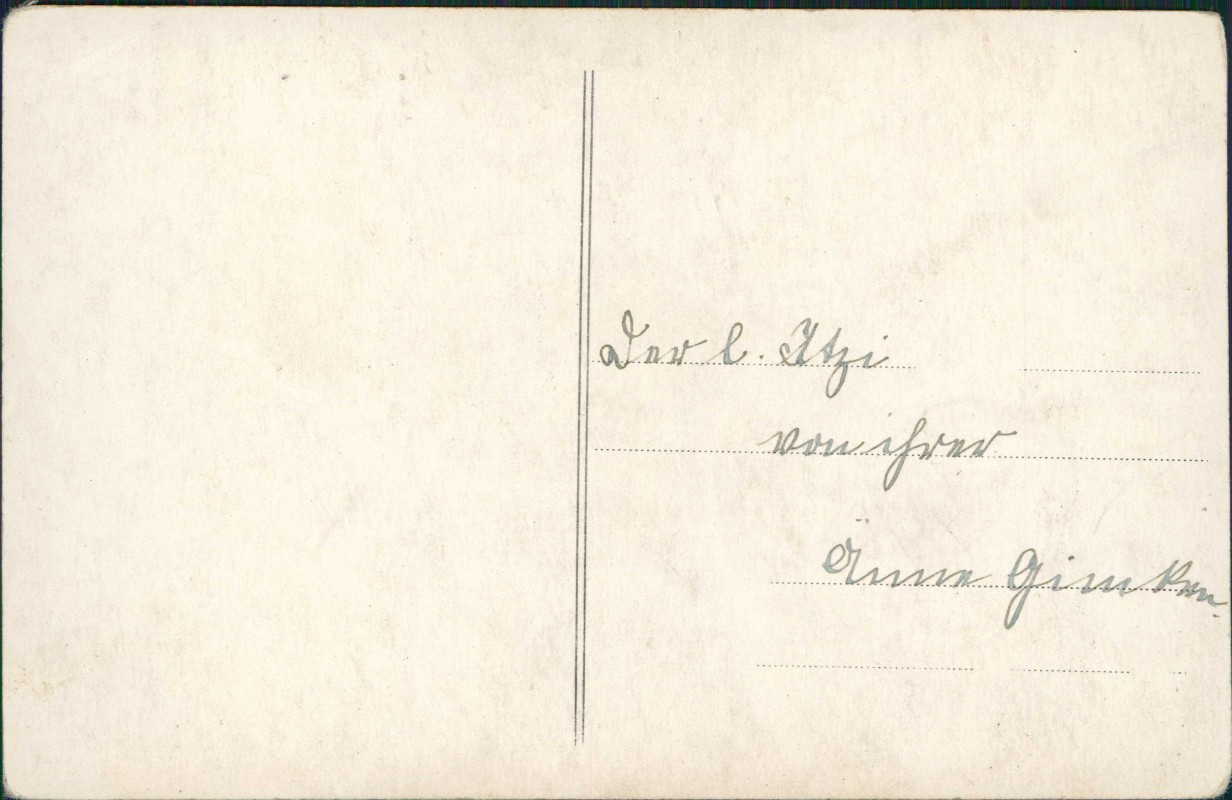 Der l. Itzi
von ihrer
Änne Gimken